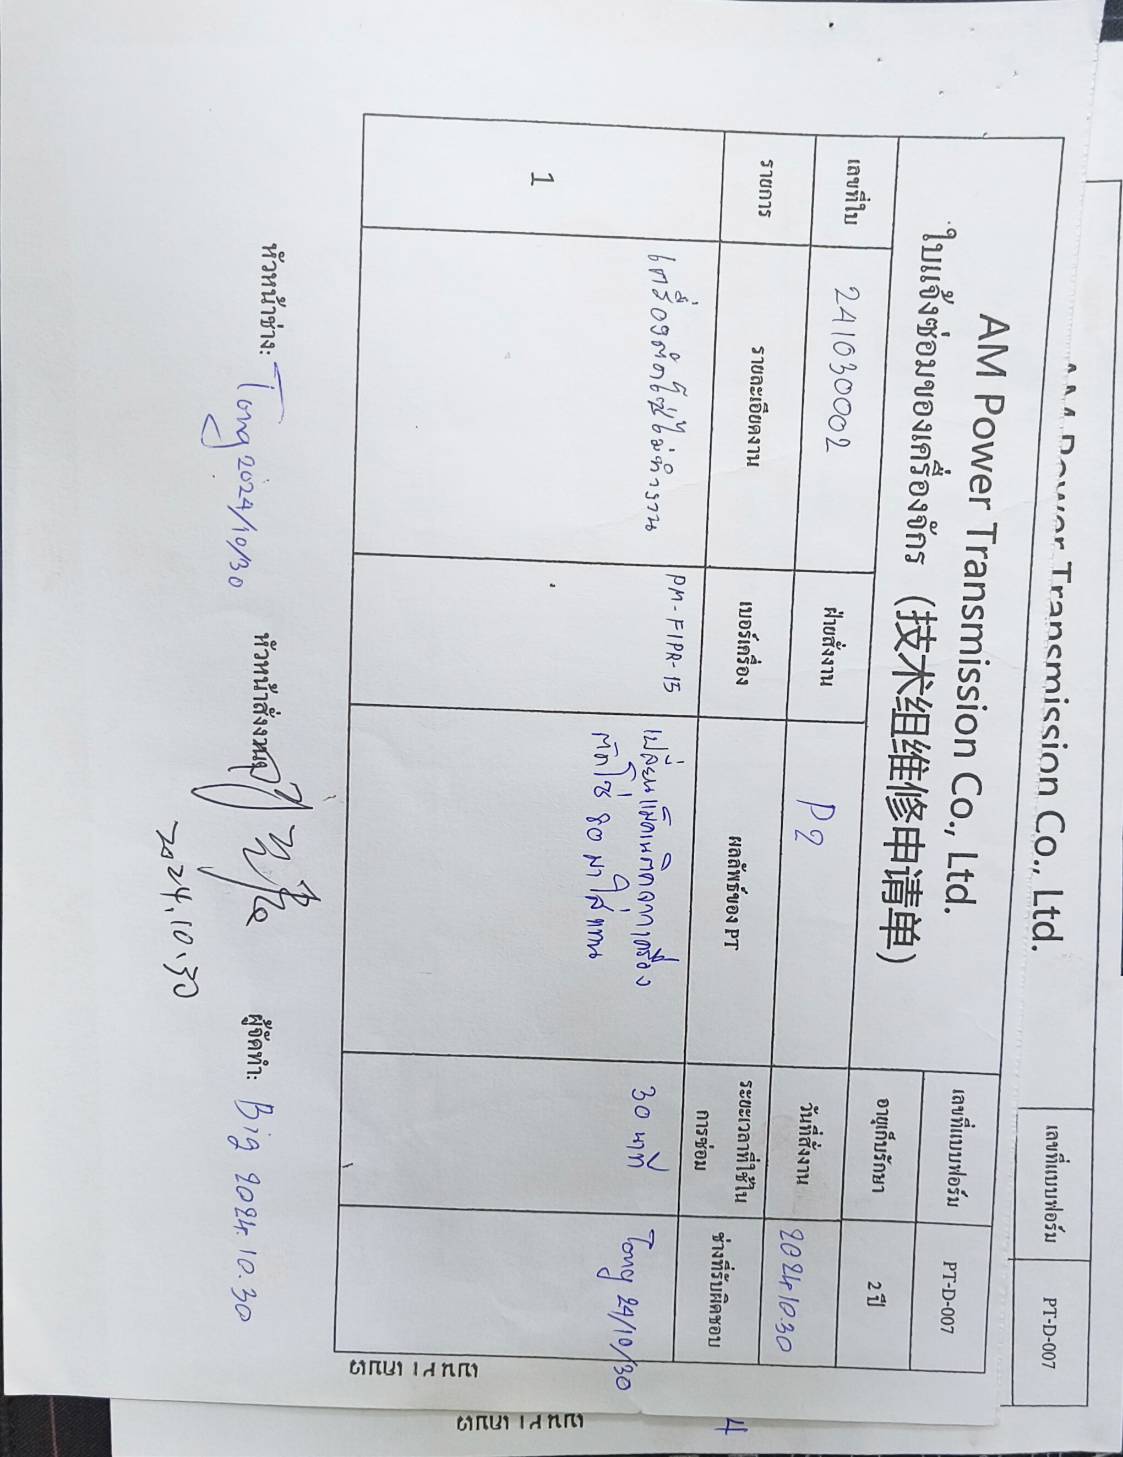 AM Power Transmission Co., Ltd.
เลขที่แบบฟอร์ม PT-D-007
AM Power Transmission Co., Ltd.
ใบแจ้งซ่อมของเครื่องจักร (技术组维修申请单)
เลขที่แบบฟอร์ม PT-D-007
อายุเก็บรักษา 2 ปี
เลขที่ใบ 241030002 ฝ่ายสั่งงาน P2 วันที่สั่งงาน 2024.10.30
รายการ รายละเอียดงาน เบอร์เครื่อง ผลลัพธ์ของ PT ระยะเวลาที่ใช้ใน
การซ่อม ช่างที่รับผิดชอบ
1 เครื่องตัดโซ่ไม่ทำงาน PM-F1PR-15 เปลี่ยนแม็คเนติคจากเครื่อง
ตัดโซ่ 80 มาใส่แทน 30 นาที Tong 24/10/30
4
หัวหน้าช่าง: Tong 2024/10/30 หัวหน้าสั่งงาน: ผู้จัดทำ: Big 2024.10.30
2024.10.30